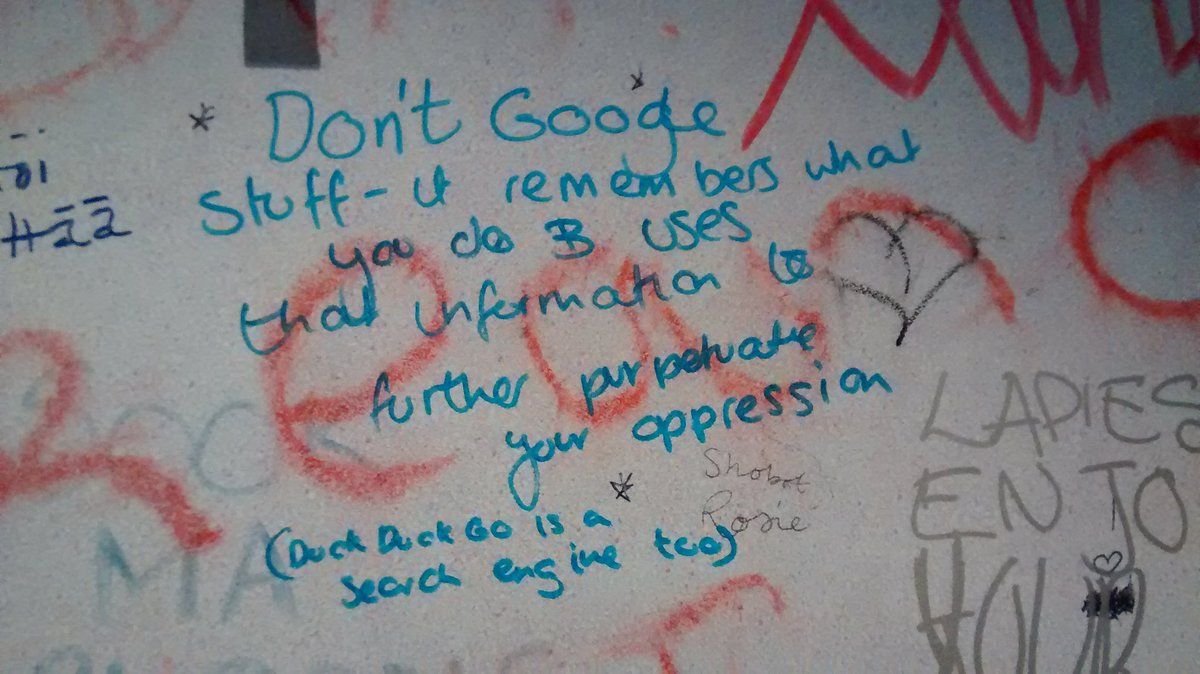 Don't Google
Stuff - it remembers what
you do & uses
that information to
further purpetuate
your oppression
(Duck Duck Go is a
search engine too)
Shobot
Rosie
LADIES
ENJO
YOUR
MA
#22